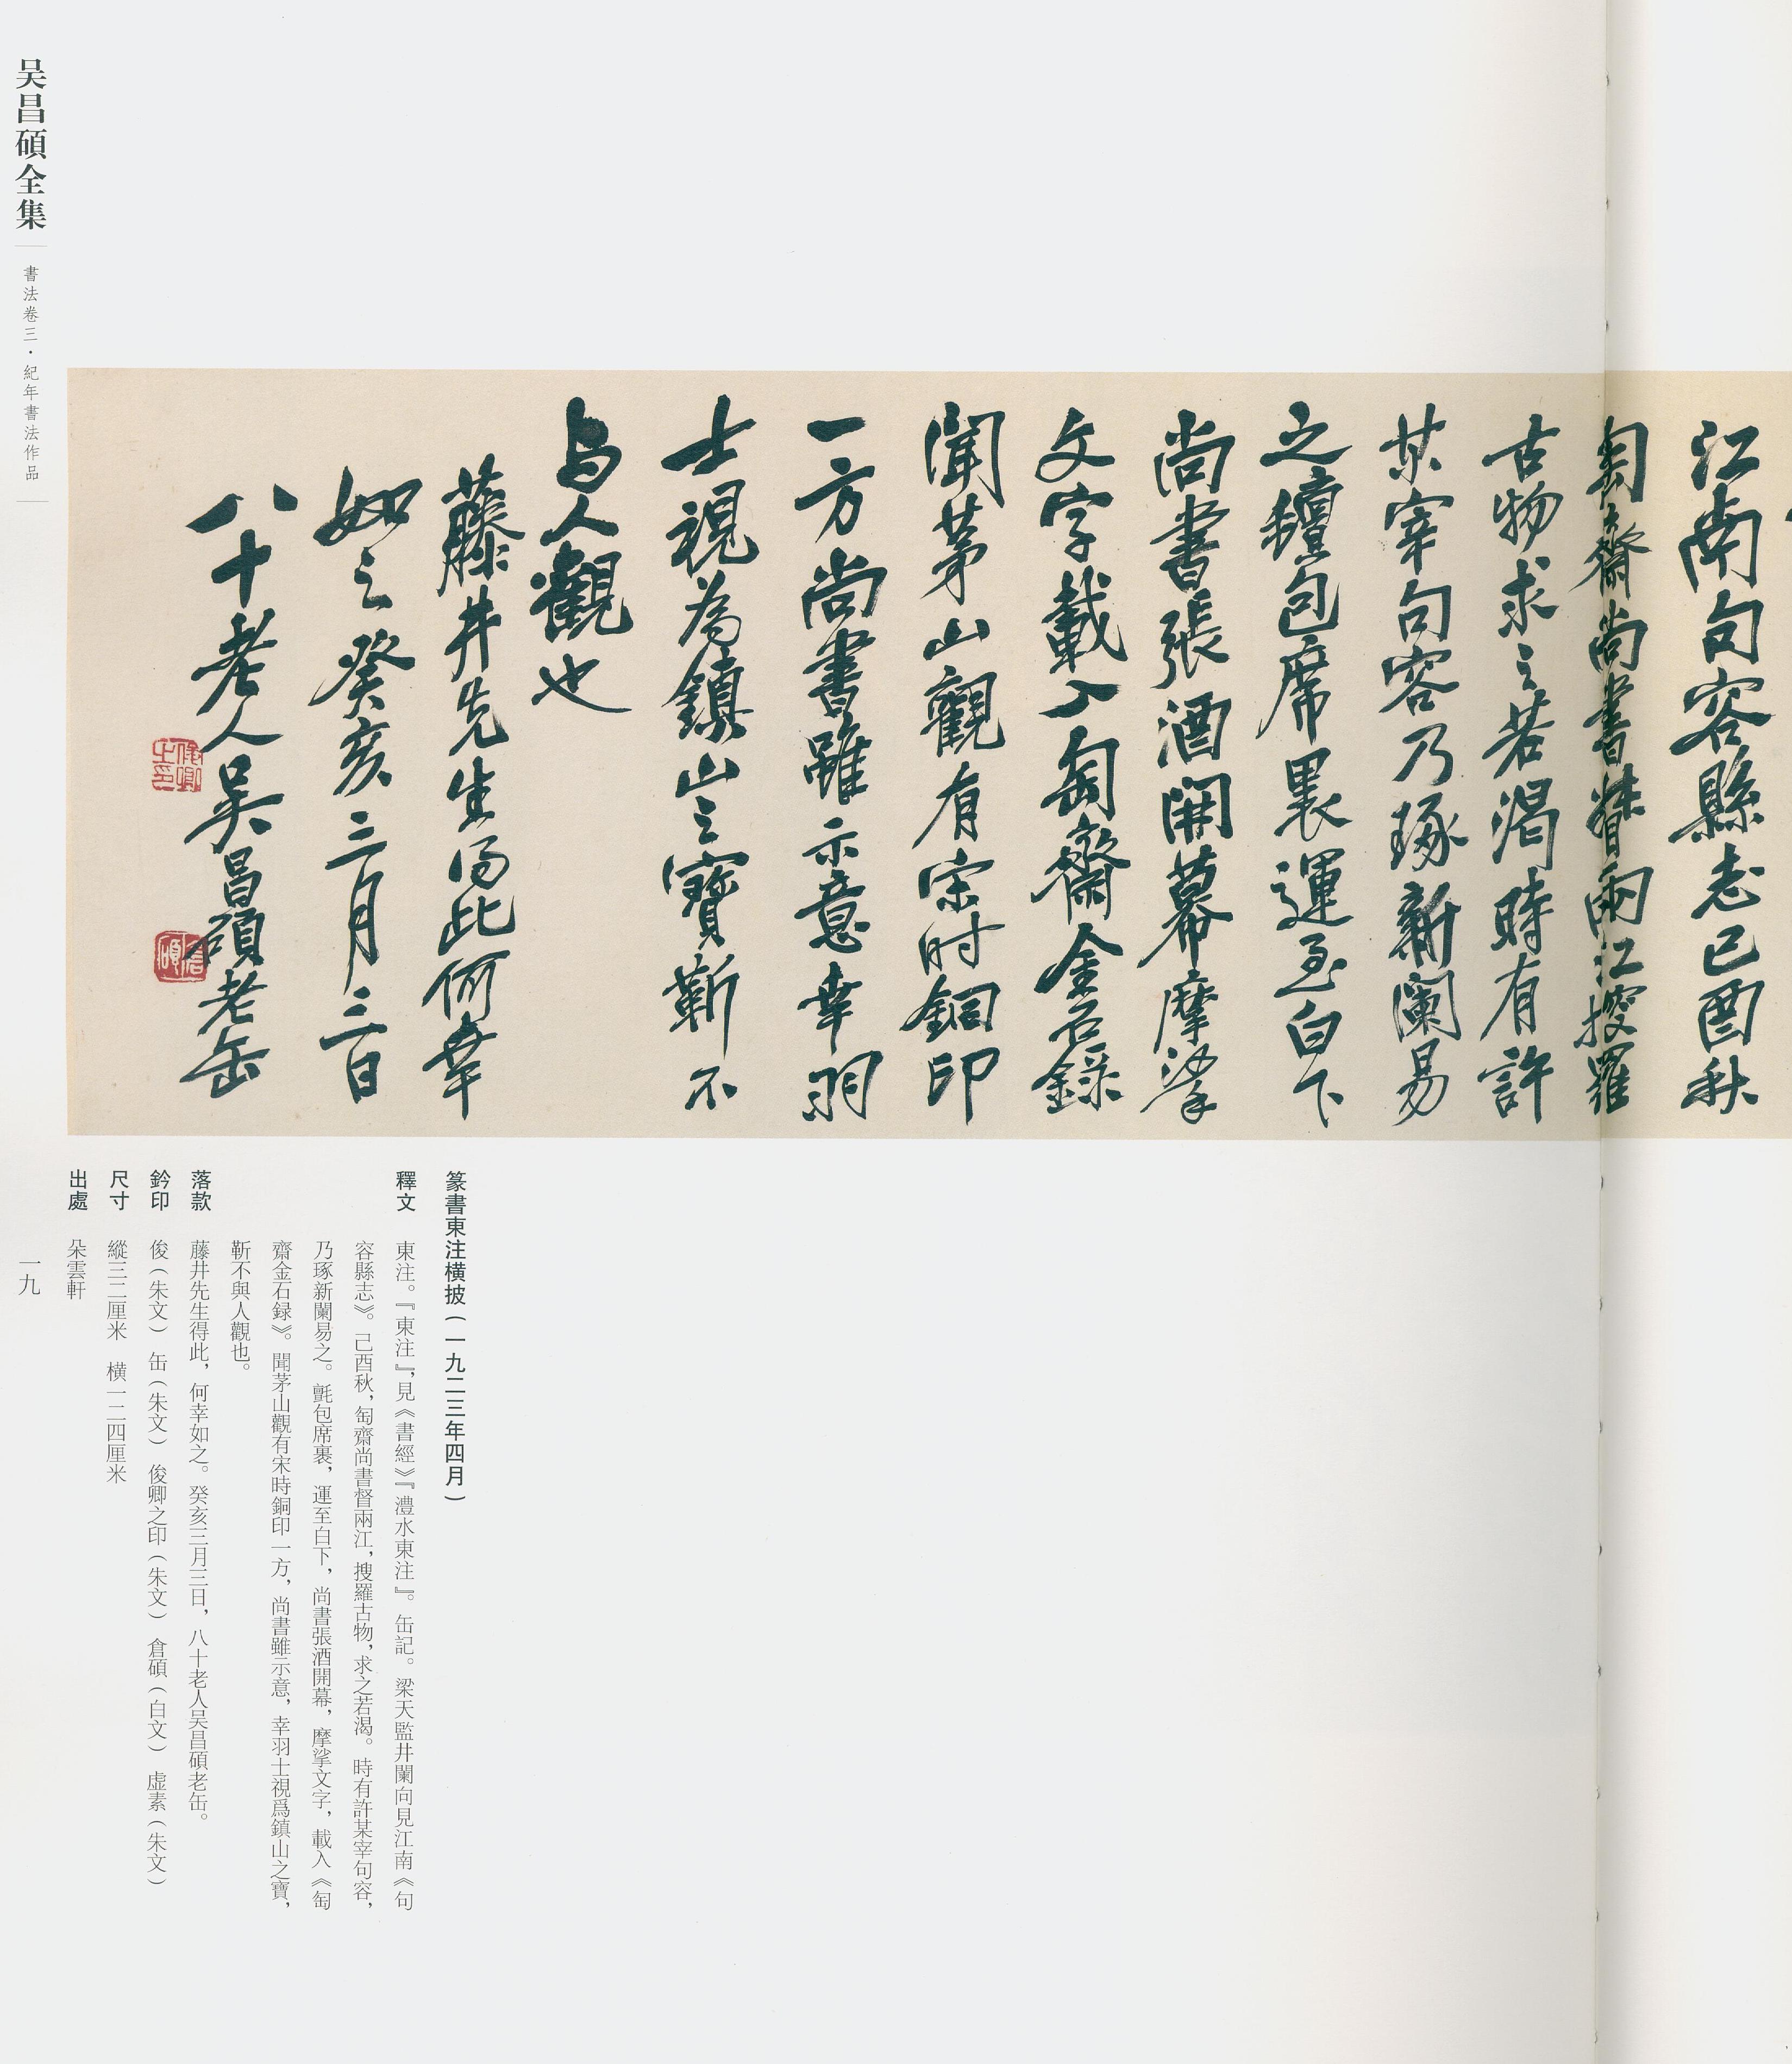 江南句容縣志己酉秋
匋齋尚書督兩江搜羅
古物求之若渴時有許
某宰句容乃琢新闌易
之氊包席裹運至白下
尚書張酒開幕摩挲
文字載入匋齋金石錄
聞茅山觀有宋时銅印
一方尚書雖示意幸羽
士視為鎮山之寶靳不
与人觀也
藤井先生得此何幸
如之癸亥三月三日
八十老人吴昌碩老缶
俊卿之印
倉碩
篆書東注横披（一九二三年四月）
釋文 東注。『東注』，見《書經》『澧水東注』。缶記。梁天監井闌向見江南《句
容縣志》。己酉秋，匋齋尚書督兩江，搜羅古物，求之若渴。時有許某宰句容，
乃琢新闌易之。氈包席裹，運至白下，尚書張酒開幕，摩挲文字，載入《匋
齋金石録》。聞茅山觀有宋時銅印一方，尚書雖示意，幸羽士視爲鎮山之寶，
靳不與人觀也。
落款 藤井先生得此，何幸如之。癸亥三月三日，八十老人吴昌碩老缶。
鈐印 俊（朱文） 缶（朱文） 俊卿之印（朱文） 倉碩（白文） 虚素（朱文）
尺寸 縱三二厘米 横一二四厘米
出處 朵雲軒
吴昌碩全集
書法卷三·紀年書法作品
一九